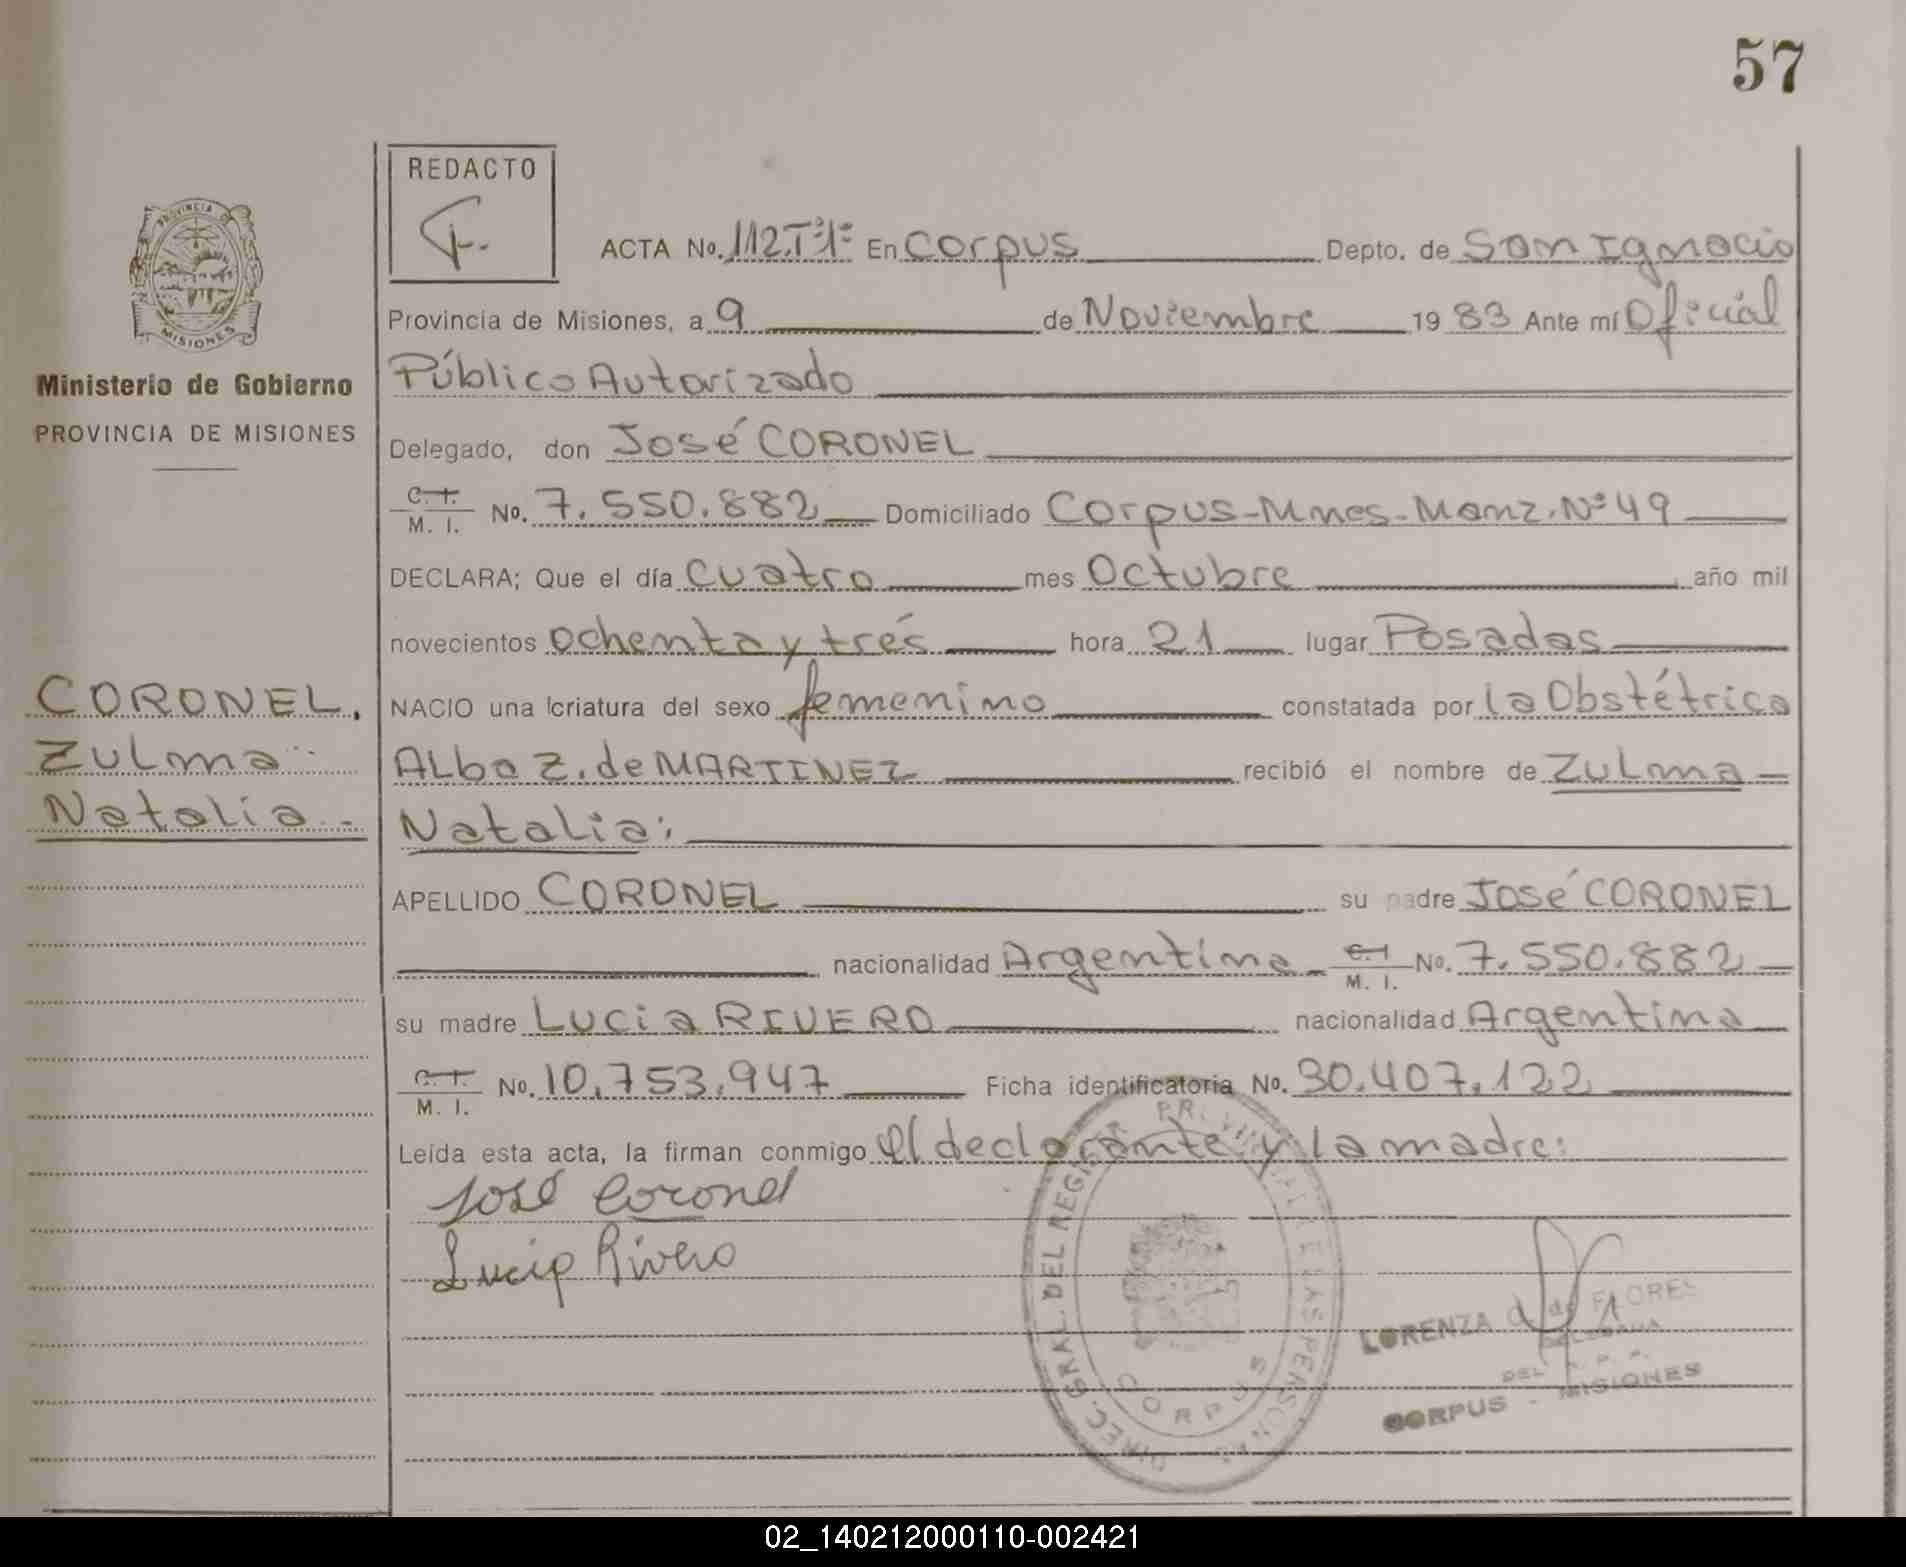 57
REDACTO
PROVINCIA DE
MISIONES
Ministerio de Gobierno
PROVINCIA DE MISIONES
CORONEL,
Zulma
Natalia.-
ACTA No. 112.Tº1º En Corpus Depto. de San Ignacio
Provincia de Misiones, a 9 de Noviembre 1983 Ante mí Oficial
Público Autorizado
Delegado, don José CORONEL
C. I.
M. I. No. 7.550.882 Domiciliado Corpus-Mnes-Manz.Nº49
DECLARA; Que el día cuatro mes Octubre año mil
novecientos ochenta y tres hora 21 lugar Posadas
NACIO una criatura del sexo femenino constatada por la Obstétrica
Alba Z. de MARTINEZ recibió el nombre de Zulma
Natalia:
APELLIDO CORONEL su padre José CORONEL
nacionalidad Argentina C. I. M. I. No. 7.550.882
su madre Lucia RIVERO nacionalidad Argentina
C. I.
M. I. No. 10.753.947 Ficha identificatoria No. 30.407.122
Leída esta acta, la firman conmigo el declarante y la madre:
José Coronel
Lucia Rivero
DIREC. GRAL. DEL REGISTRO PROVINCIAL DE LAS PERSONAS
CORPUS
LORENZA de FLORES
DELEGADA
DEL R. P. P.
CORPUS - MISIONES
02_140212000110-002421